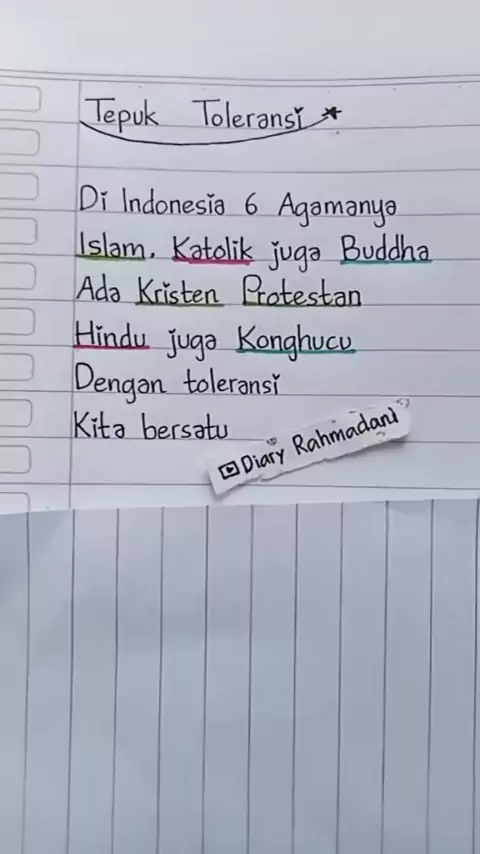 Tepuk Toleransi
Di Indonesia 6 Agamanya
Islam, Katolik juga Buddha
Ada Kristen Protestan
Hindu juga Konghucu
Dengan toleransi
Kita bersatu
Diary Rahmadani